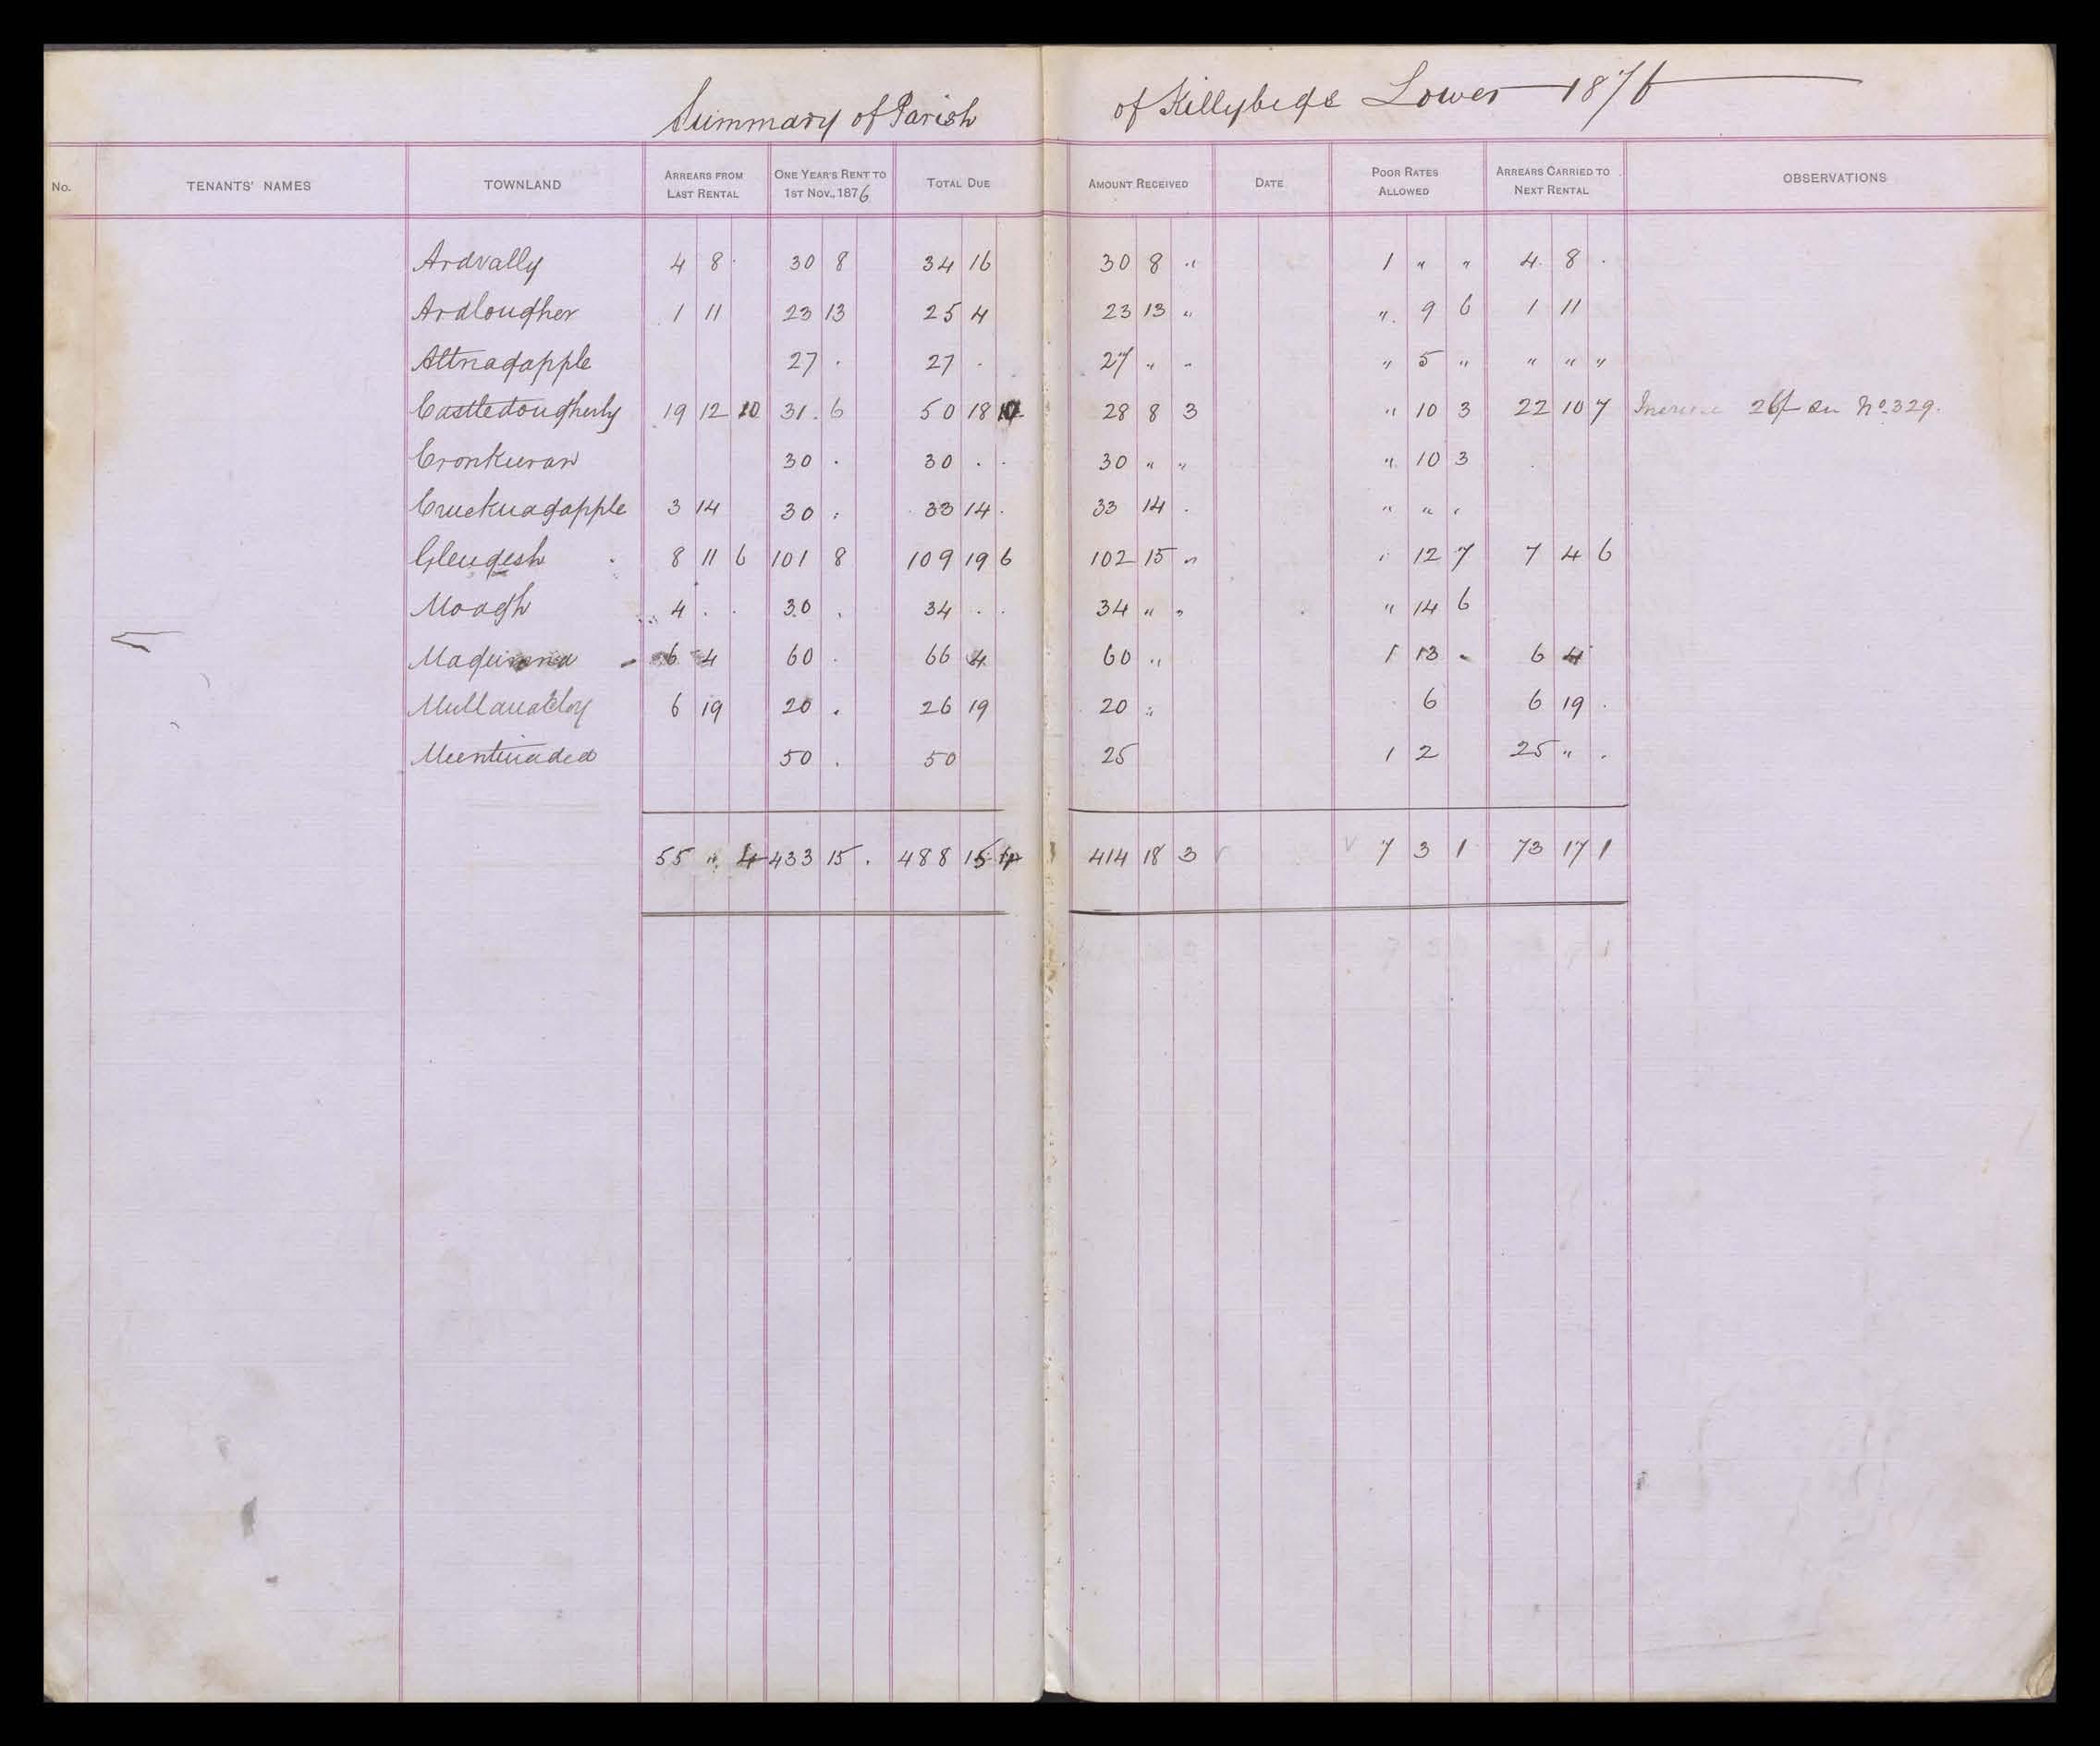 Summary of Parish of Killybegs Lower 1876
No. TENANTS' NAMES TOWNLAND ARREARS FROM LAST RENTAL ONE YEAR'S RENT TO 1ST NOV., 1876 TOTAL DUE AMOUNT RECEIVED DATE POOR RATES ALLOWED ARREARS CARRIED TO NEXT RENTAL OBSERVATIONS
Ardvally 4 8 · 30 8 34 16 30 8 " 1 " " 4 8 ·
Ardlougher 1 11 23 13 25 4 23 13 " " 9 6 1 11
Altnagapple 27 · 27 · 27 " " " 5 " " " "
Castledougherty 19 12 10 31 6 50 18 10 28 8 3 " 10 3 22 10 7 26/- on No. 329.
Cronkeeran 30 · 30 · · 30 " " " 10 3
Crucknagapple 3 14 30 · 33 14 · 33 14 · " " "
Glengesh 8 11 6 101 8 109 19 6 102 15 " " 12 7 7 4 6
Moagh 4 · · 30 · 34 · · 34 " " " 14 6
6 4 60 · 66 4 60 " 1 13 - 6 4
6 19 20 · 26 19 20 " 6 6 19 ·
50 · 50 25 1 2 25 " ·
55 " 4 433 15 · 488 15 4 414 18 3 7 3 1 73 17 1